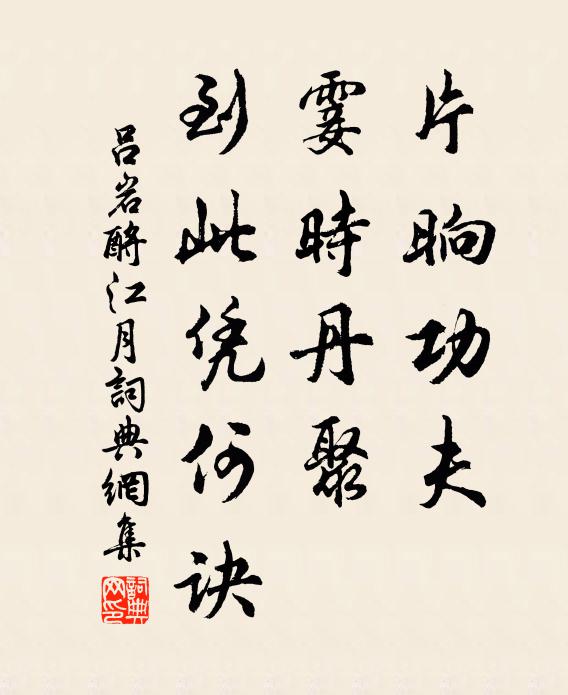 片晌功夫
霎時丹聚
到此凭何訣
吕岩酹江月詞典網集
詞典网印